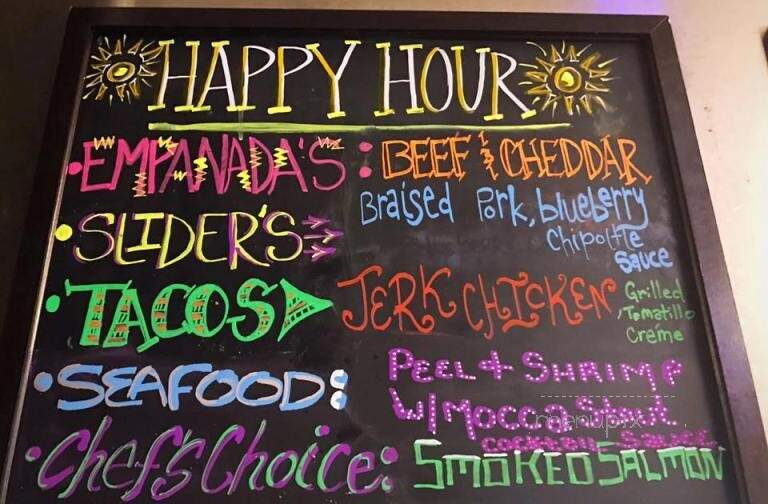 HAPPY HOUR
• EMPANADA'S : BEEF & CHEDDAR
• SLIDER'S Braised Pork, blueberry
Chipoltle
Sauce
• TACOS JERK CHICKEN Grilled
Tomatillo
Creme
• SEAFOOD: PEEL & SHRIMP
W/ Stout
COCKTAIL SAUCE
• Chef's Choice: SMOKED SALMON
menupix